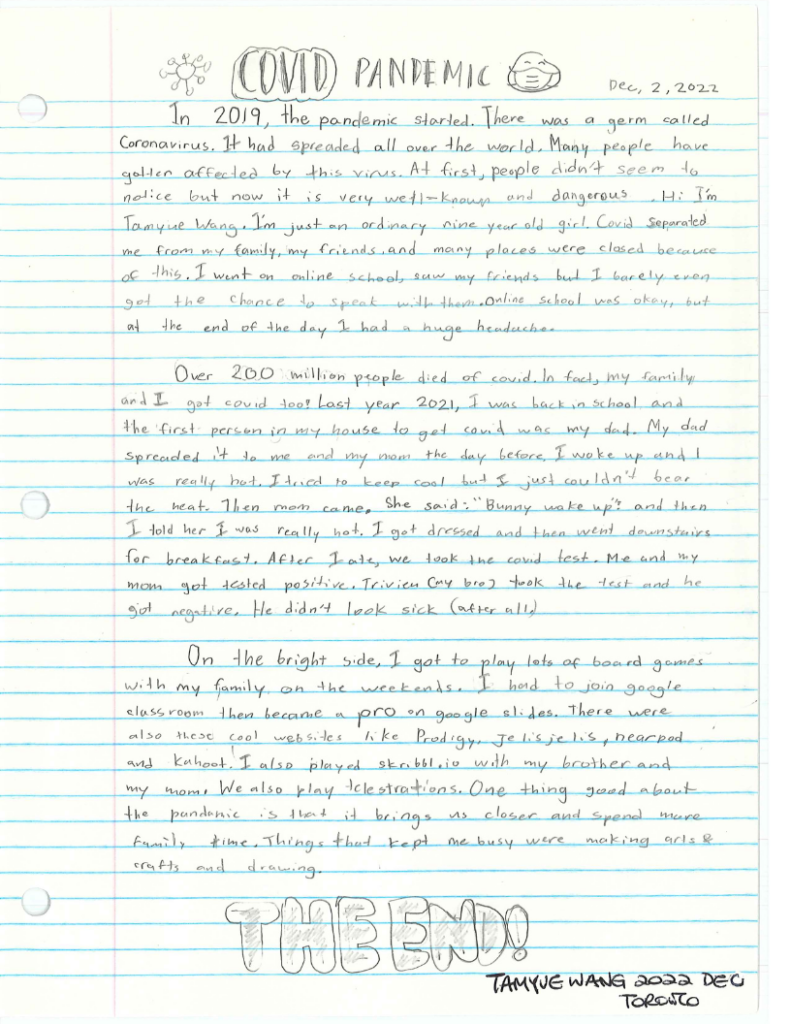 COVID PANDEMIC
Dec, 2, 2022
In 2019, the pandemic started. There was a germ called
Coronavirus. It had spreaded all over the world. Many people have
gotten affected by this virus. At first, people didn't seem to
notice but now it is very well-known and dangerous. Hi I'm
Tamyue Wang. I'm just an ordinary nine year old girl. Covid separated
me from my family, my friends, and many places were closed because
of this. I went on online school, saw my friends but I barely even
got the chance to speak with them. Online school was okay, but
at the end of the day I had a huge headache.
Over 200 million people died of covid. In fact, my family
and I got covid too! Last year 2021, I was back in school and
the first person in my house to get covid was my dad. My dad
spreaded it to me and my mom the day before. I woke up and I
was really hot. I tried to keep cool but I just couldn't bear
the heat. Then mom came. She said: "Bunny wake up"! and then
I told her I was really hot. I got dressed and then went downstairs
for breakfast. After I ate, we took the covid test. Me and my
mom got tested positive. Trivien (my bro) took the test and he
got negative. He didn't look sick (after all)
On the bright side, I got to play lots of board games
with my family on the weekends. I had to join google
classroom then became a pro on google slides. There were
also these cool websites like Prodigy, jelisjelis, nearpod
and Kahoot! I also played skribbl.io with my brother and
my mom. We also play telestrations. One thing good about
the pandemic is that it brings us closer and spend more
family time. Things that kept me busy were making arts &
crafts and drawing.
THE END!
TAMYUE WANG 2022 DEC
TORONTO